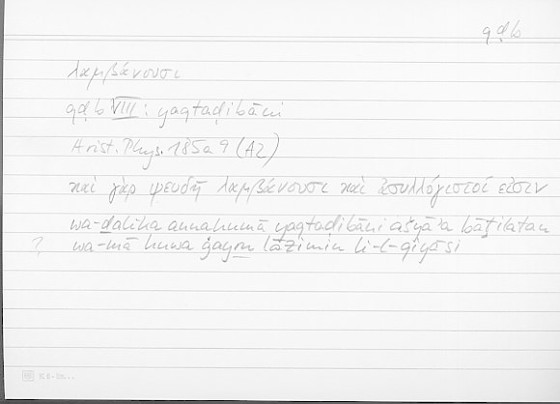 qḍb
λαμβάνουσι
qḍb VIII: yaqtaḍibāni
Arist. Phys. 185a9 (A2)
καὶ γὰρ ψευδῆ λαμβάνουσι καὶ ἀσυλλόγιστοί εἰσιν
wa-ḏalika annahumā yaqtaḍibāni ašyāʾa bāṭilatan
? wa-mā huwa ġayru lāzimin li-l-qiyāsi